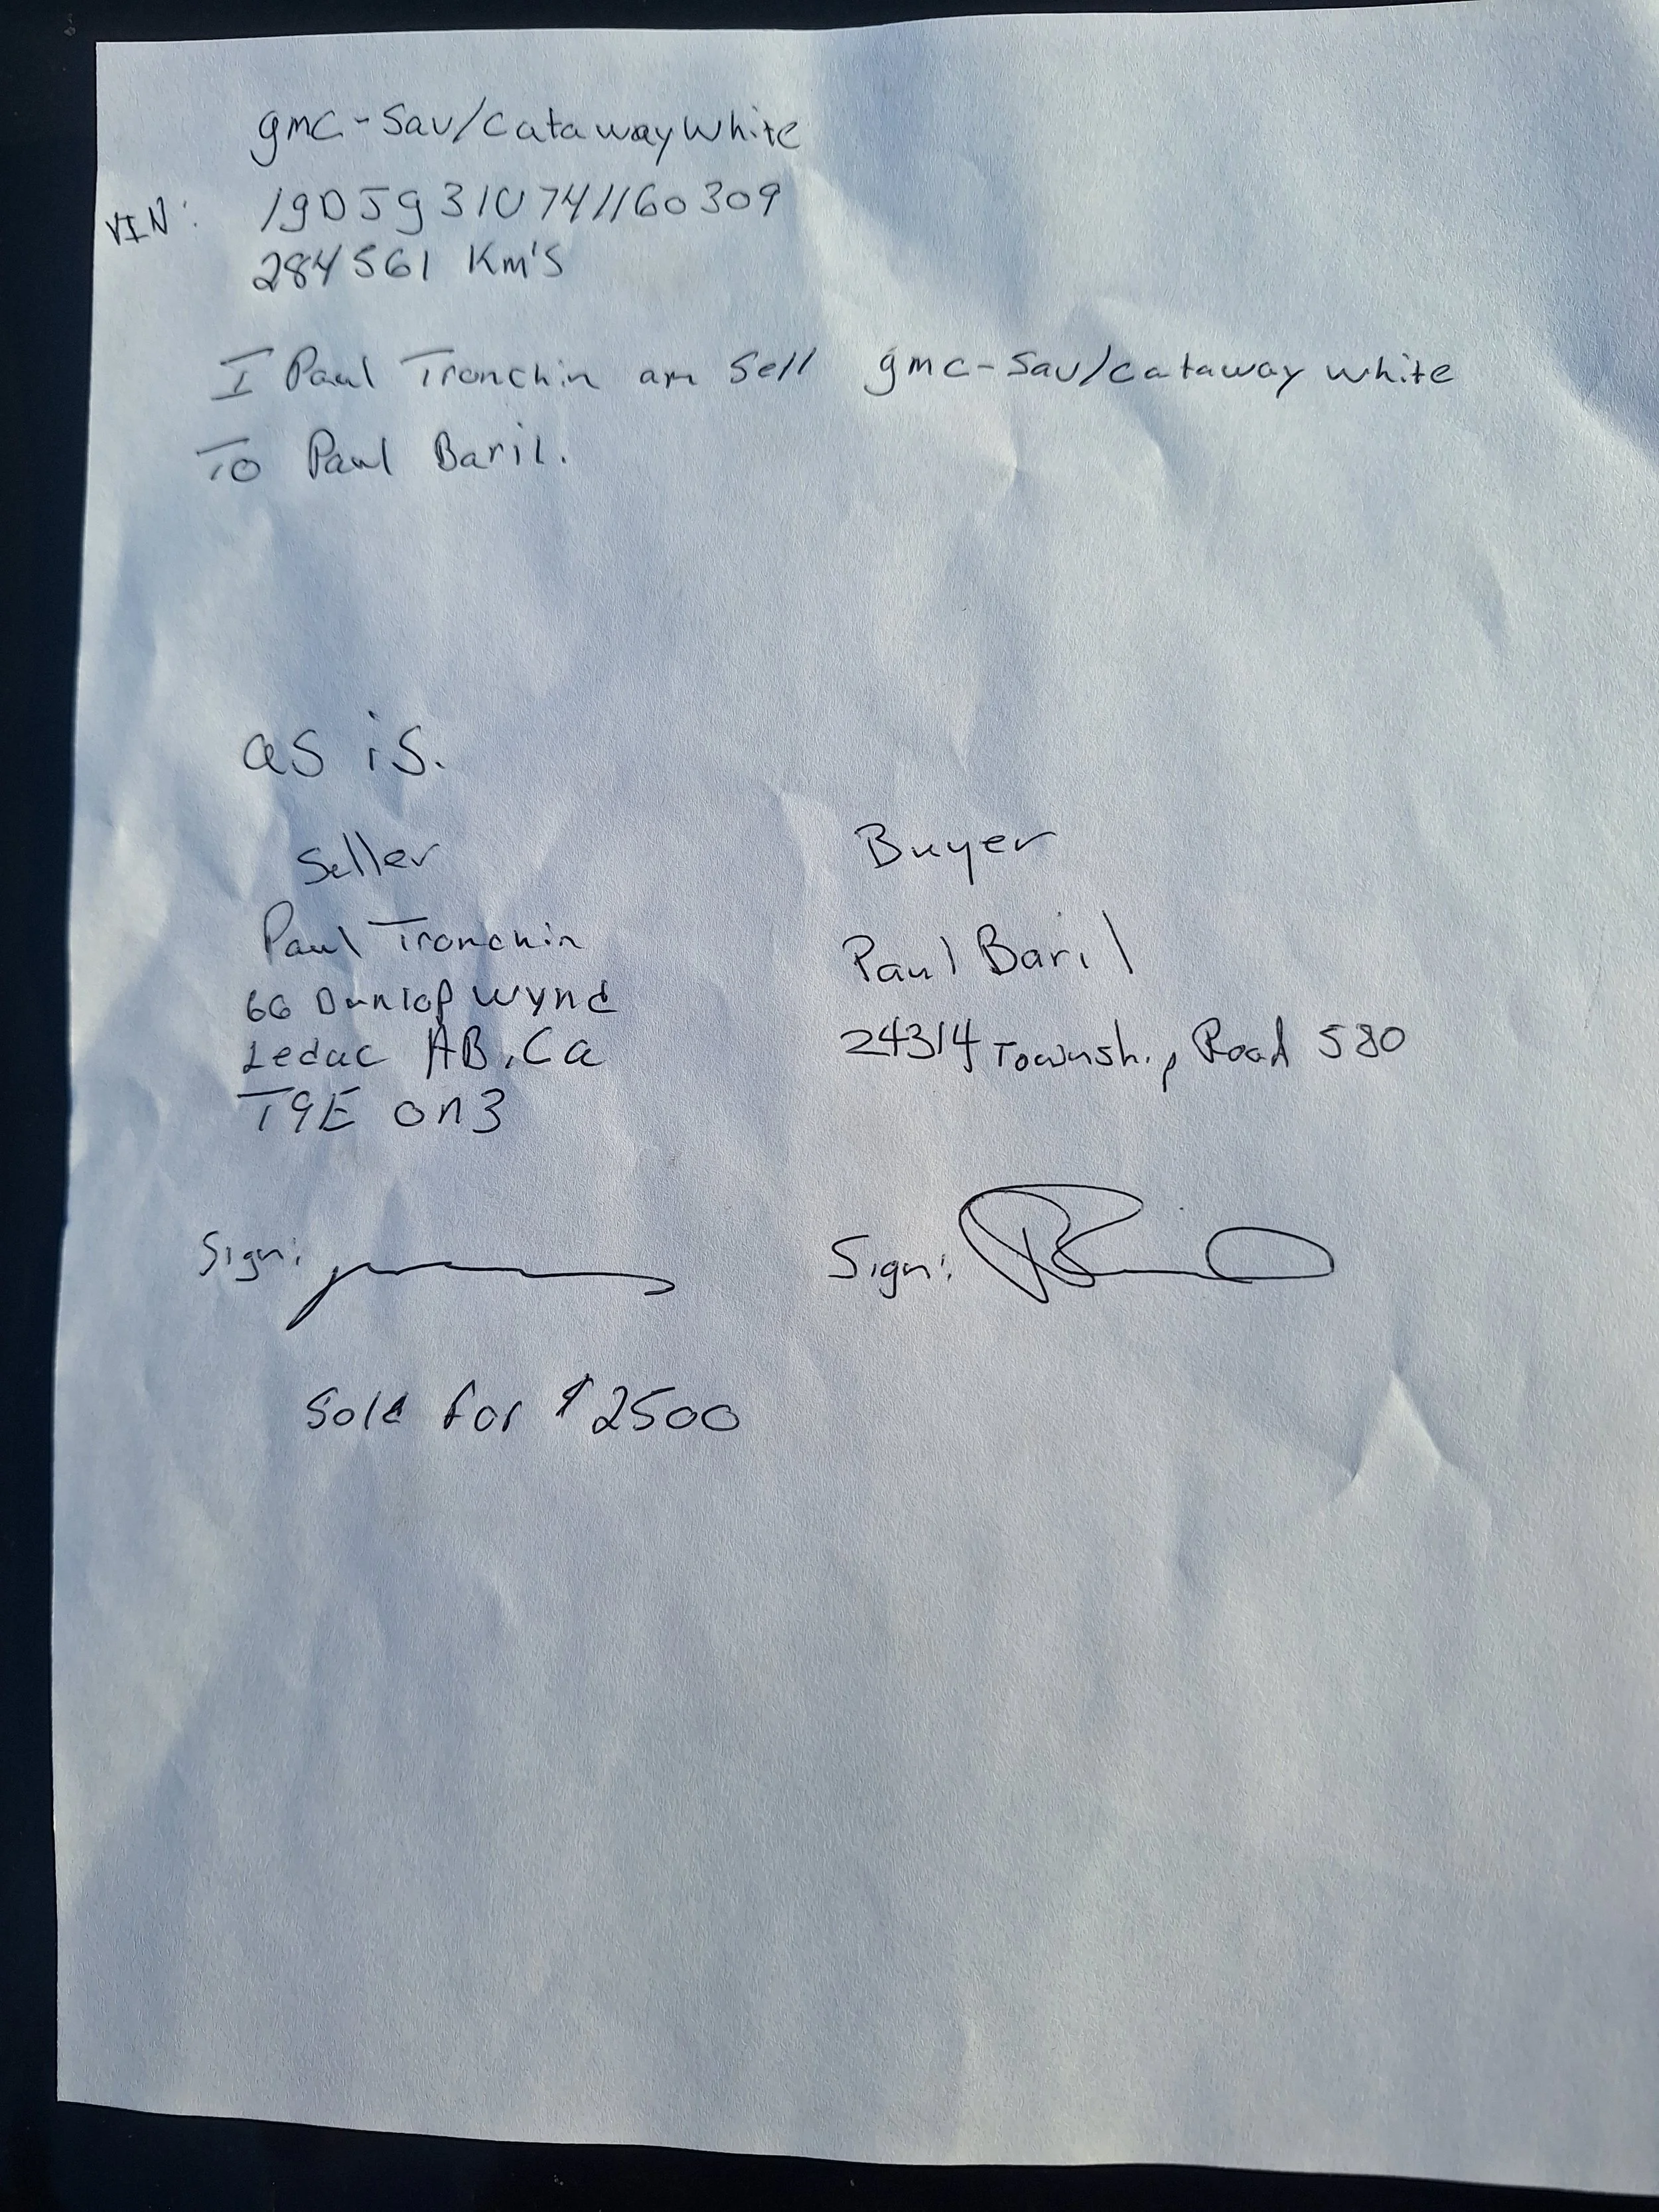 gmc-Sav/cataway white
VIN: 1gDJg31U741160309
284561 Km's
I Paul Tronchin am Sell gmc-Sav/cataway white
To Paul Baril.
as is.
Seller
Buyer
Paul Tronchin
Paul Baril
66 Dunlop wynd
24314 Township Road 580
Leduc AB, Ca
T9E 0n3
Sign:
Sign:
Sold for $2500